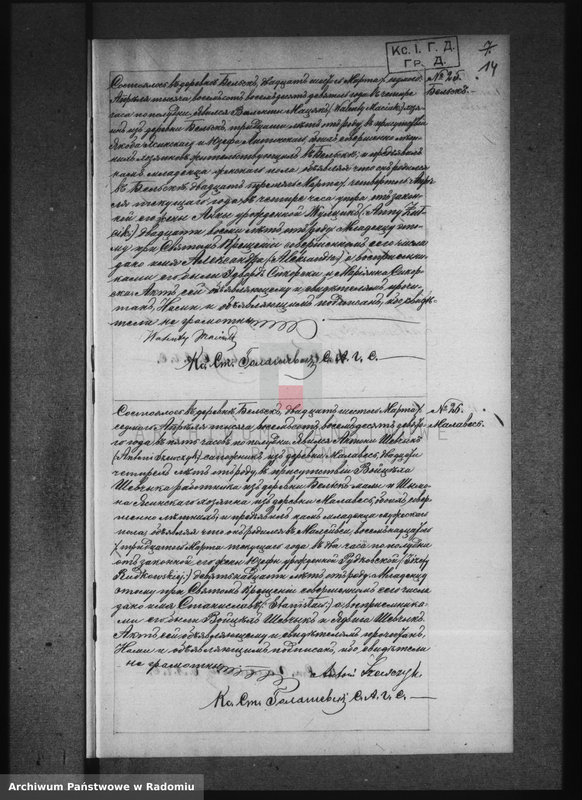 Кс. I. Г. Д.
Гр. Д.
7.
14
№ 25.
Бельскъ.
Состоялось въ деревнѣ Бельскъ, двадцать шестаго Марта / седьмаго
Апрѣля тысяча восемьсотъ восемьдесятъ девятаго года въ четыре
часа по полудни. Явился Валенты Мацякъ / Walenty Maciak /,
изъ деревни Бельскъ, тридцати лѣтъ отъ роду, въ присутствіи
Якова и Юзефа
жительствующихъ въ Бельскѣ, и предъявилъ
намъ младенца женскаго пола, объявляя что онъ родился
въ Бельскѣ двадцать Марта / четвертаго Апрѣ-
ля текущаго года въ четыре часа утра отъ закон-
ной его жены Анны урожденной / Anny
/ двадцати лѣтъ отъ роду. Младенцу это-
му при Святомъ Крещеніи совершенномъ сего числа
дано имя Александра / / а воспріемни-
ками его были Сикорски и Маріанна Сикор-
ска. Актъ сей объявляющему и свидѣтелямъ прочи-
танъ, Нами и объявляющимъ подписанъ, ибо свидѣ-
тели не грамотны.
Walenty Maciak
Кс. Ст. Голашевскі С. А. Г. С.
№ 26.
Малавесь.
Состоялось въ деревнѣ Бельскъ, двадцать шестаго Марта /
седьмаго Апрѣля тысяча восемьсотъ восемьдесятъ девята-
го года въ пять часовъ по полудни. Явился Антони Шевчикъ
/ Antoni Szewczyk / изъ деревни Малавесь, двадцати
четырехъ лѣтъ отъ роду, въ присутствіи Войцѣха
Шевчика работника изъ деревни Бельскъ и
хозяина изъ деревни Малавесь, обоихъ совер-
шеннолѣтнихъ, и предъявилъ намъ младенца мужескаго
пола, объявляя что онъ родился въ Малейвси, восемнадцатаго
/ тридцатаго Марта текущаго года въ два часа по полудни
отъ законной его жены Юзефы урожденной Рудковской / Józefy
Rudkowskiej / девятнадцати лѣтъ отъ роду. Младенцу
этому при Святомъ Крещеніи совершенномъ сего числа
дано имя Станиславъ / Stanisław / а воспріемника-
ми его были Войцѣхъ Шевчикъ и Ядвига Шевчикъ.
Актъ сей объявляющему и свидѣтелямъ прочитанъ,
Нами и объявляющимъ подписанъ, ибо свидѣтели
не грамотны.
Antoni Szewczyk
Кс. Ст. Голашевскі С. А. Г. С.
Archiwum Państwowe w Radomiu